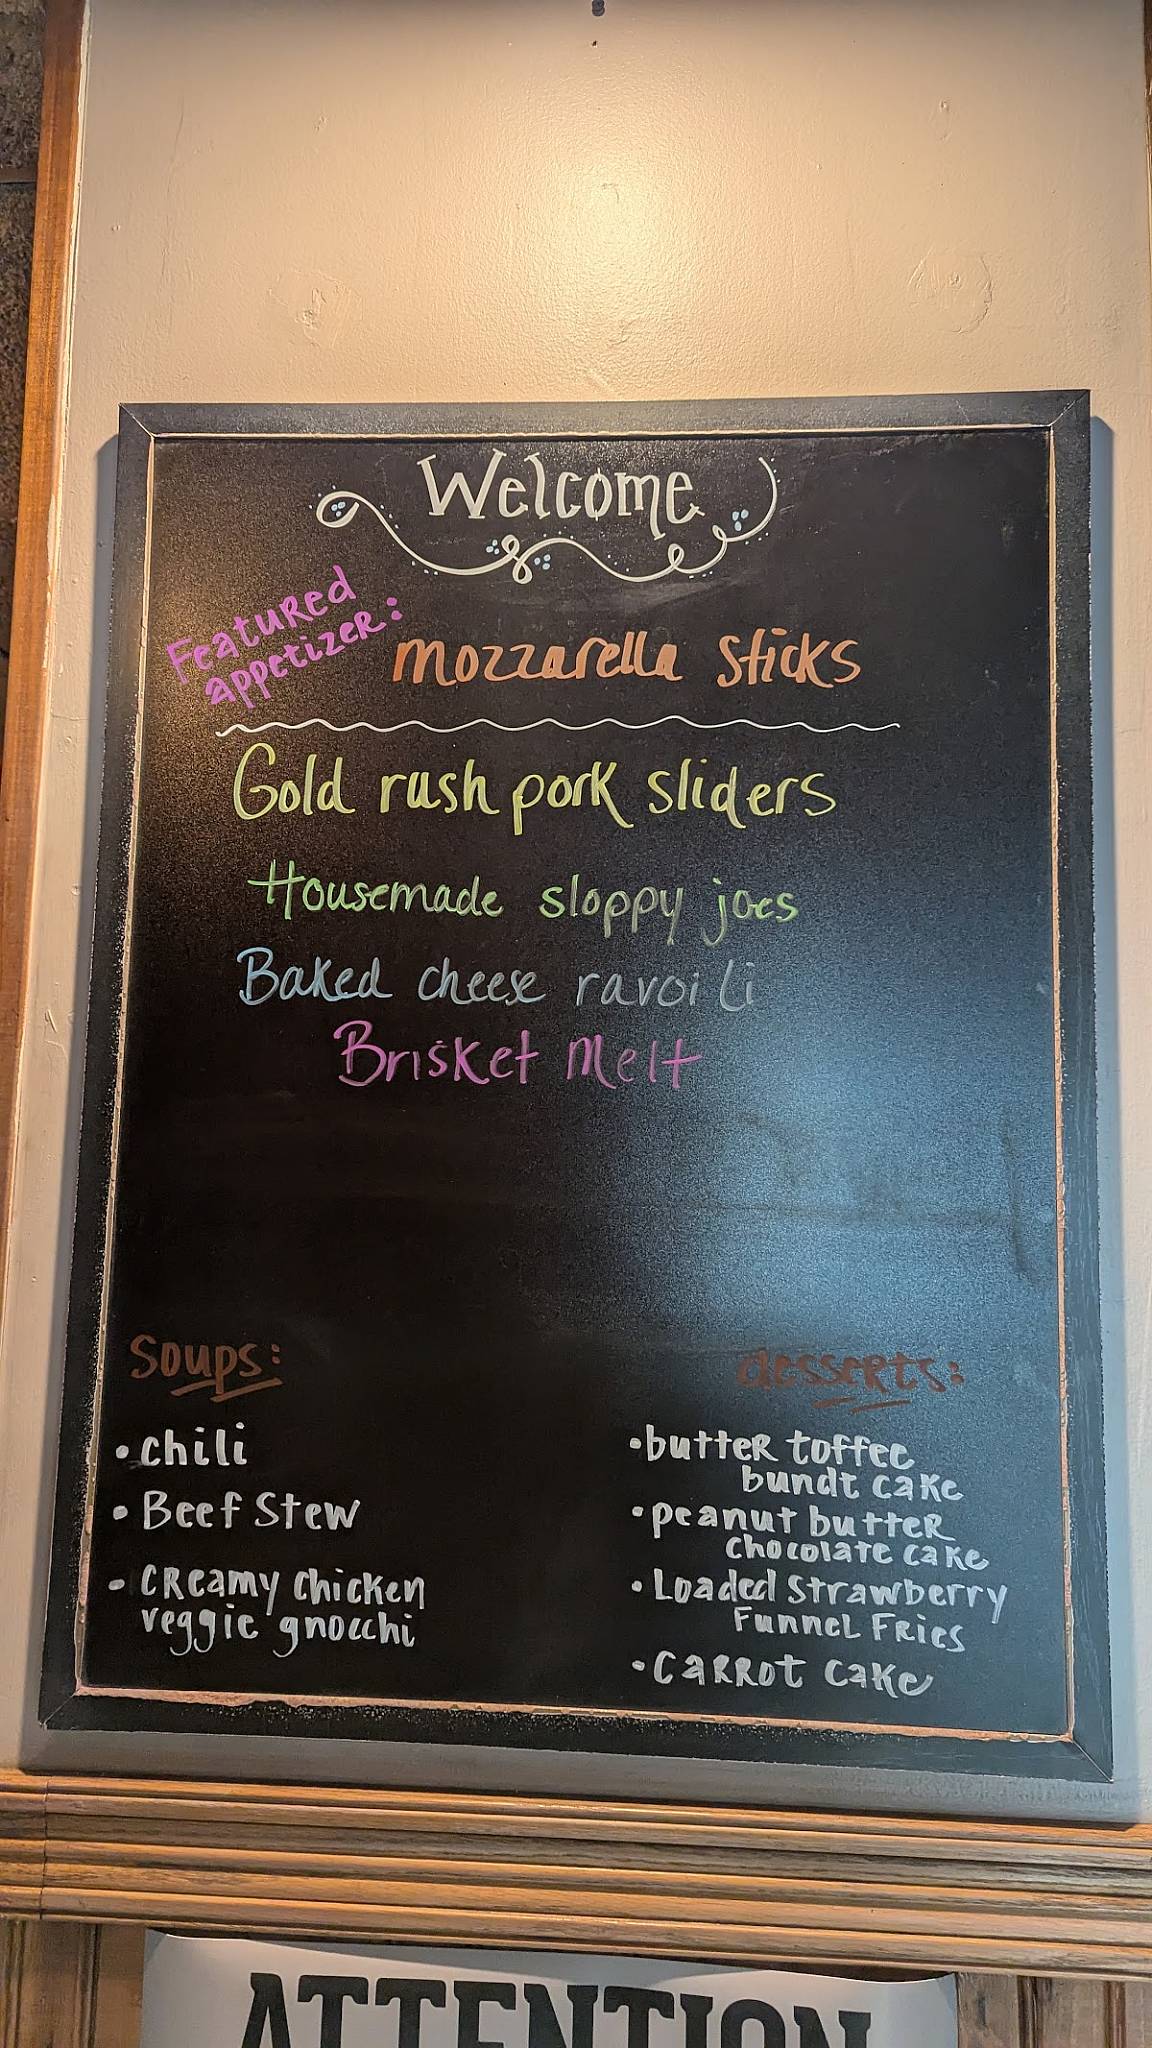 Welcome
Featured
appetizer:
mozzarella sticks
Gold rush pork sliders
Housemade sloppy joes
Baked cheese ravoili
Brisket Melt
Soups:
• chili
• Beef Stew
• creamy chicken
veggie gnocchi
desserts:
• butter toffee
bundt cake
• peanut butter
chocolate cake
• Loaded Strawberry
Funnel Fries
• carrot cake
ATTENTION